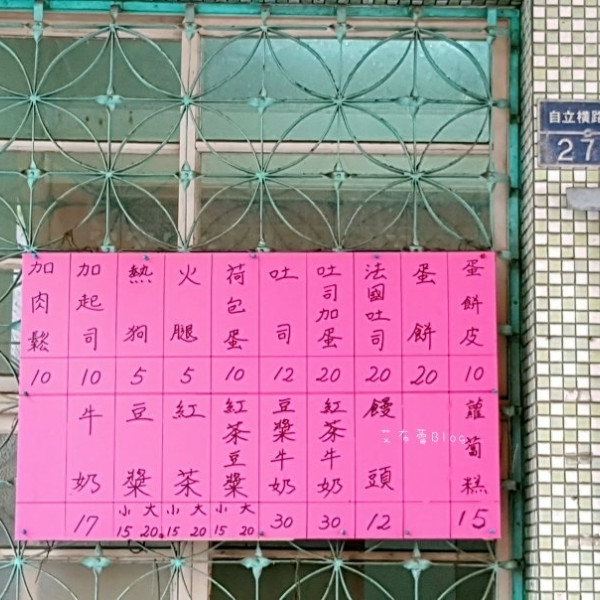 自立橫路
27
蛋餅皮 10
蛋餅 20
法國吐司 20
吐司加蛋 20
吐司 12
荷包蛋 10
火腿 5
熱狗 5
加起司 10
加肉鬆 10
蘿蔔糕 15
饅頭 12
紅茶牛奶 30
豆漿牛奶 30
紅茶豆漿 小15 大20
紅茶 小15 大20
豆漿 小15 大20
牛奶 17
艾布蕾Blog